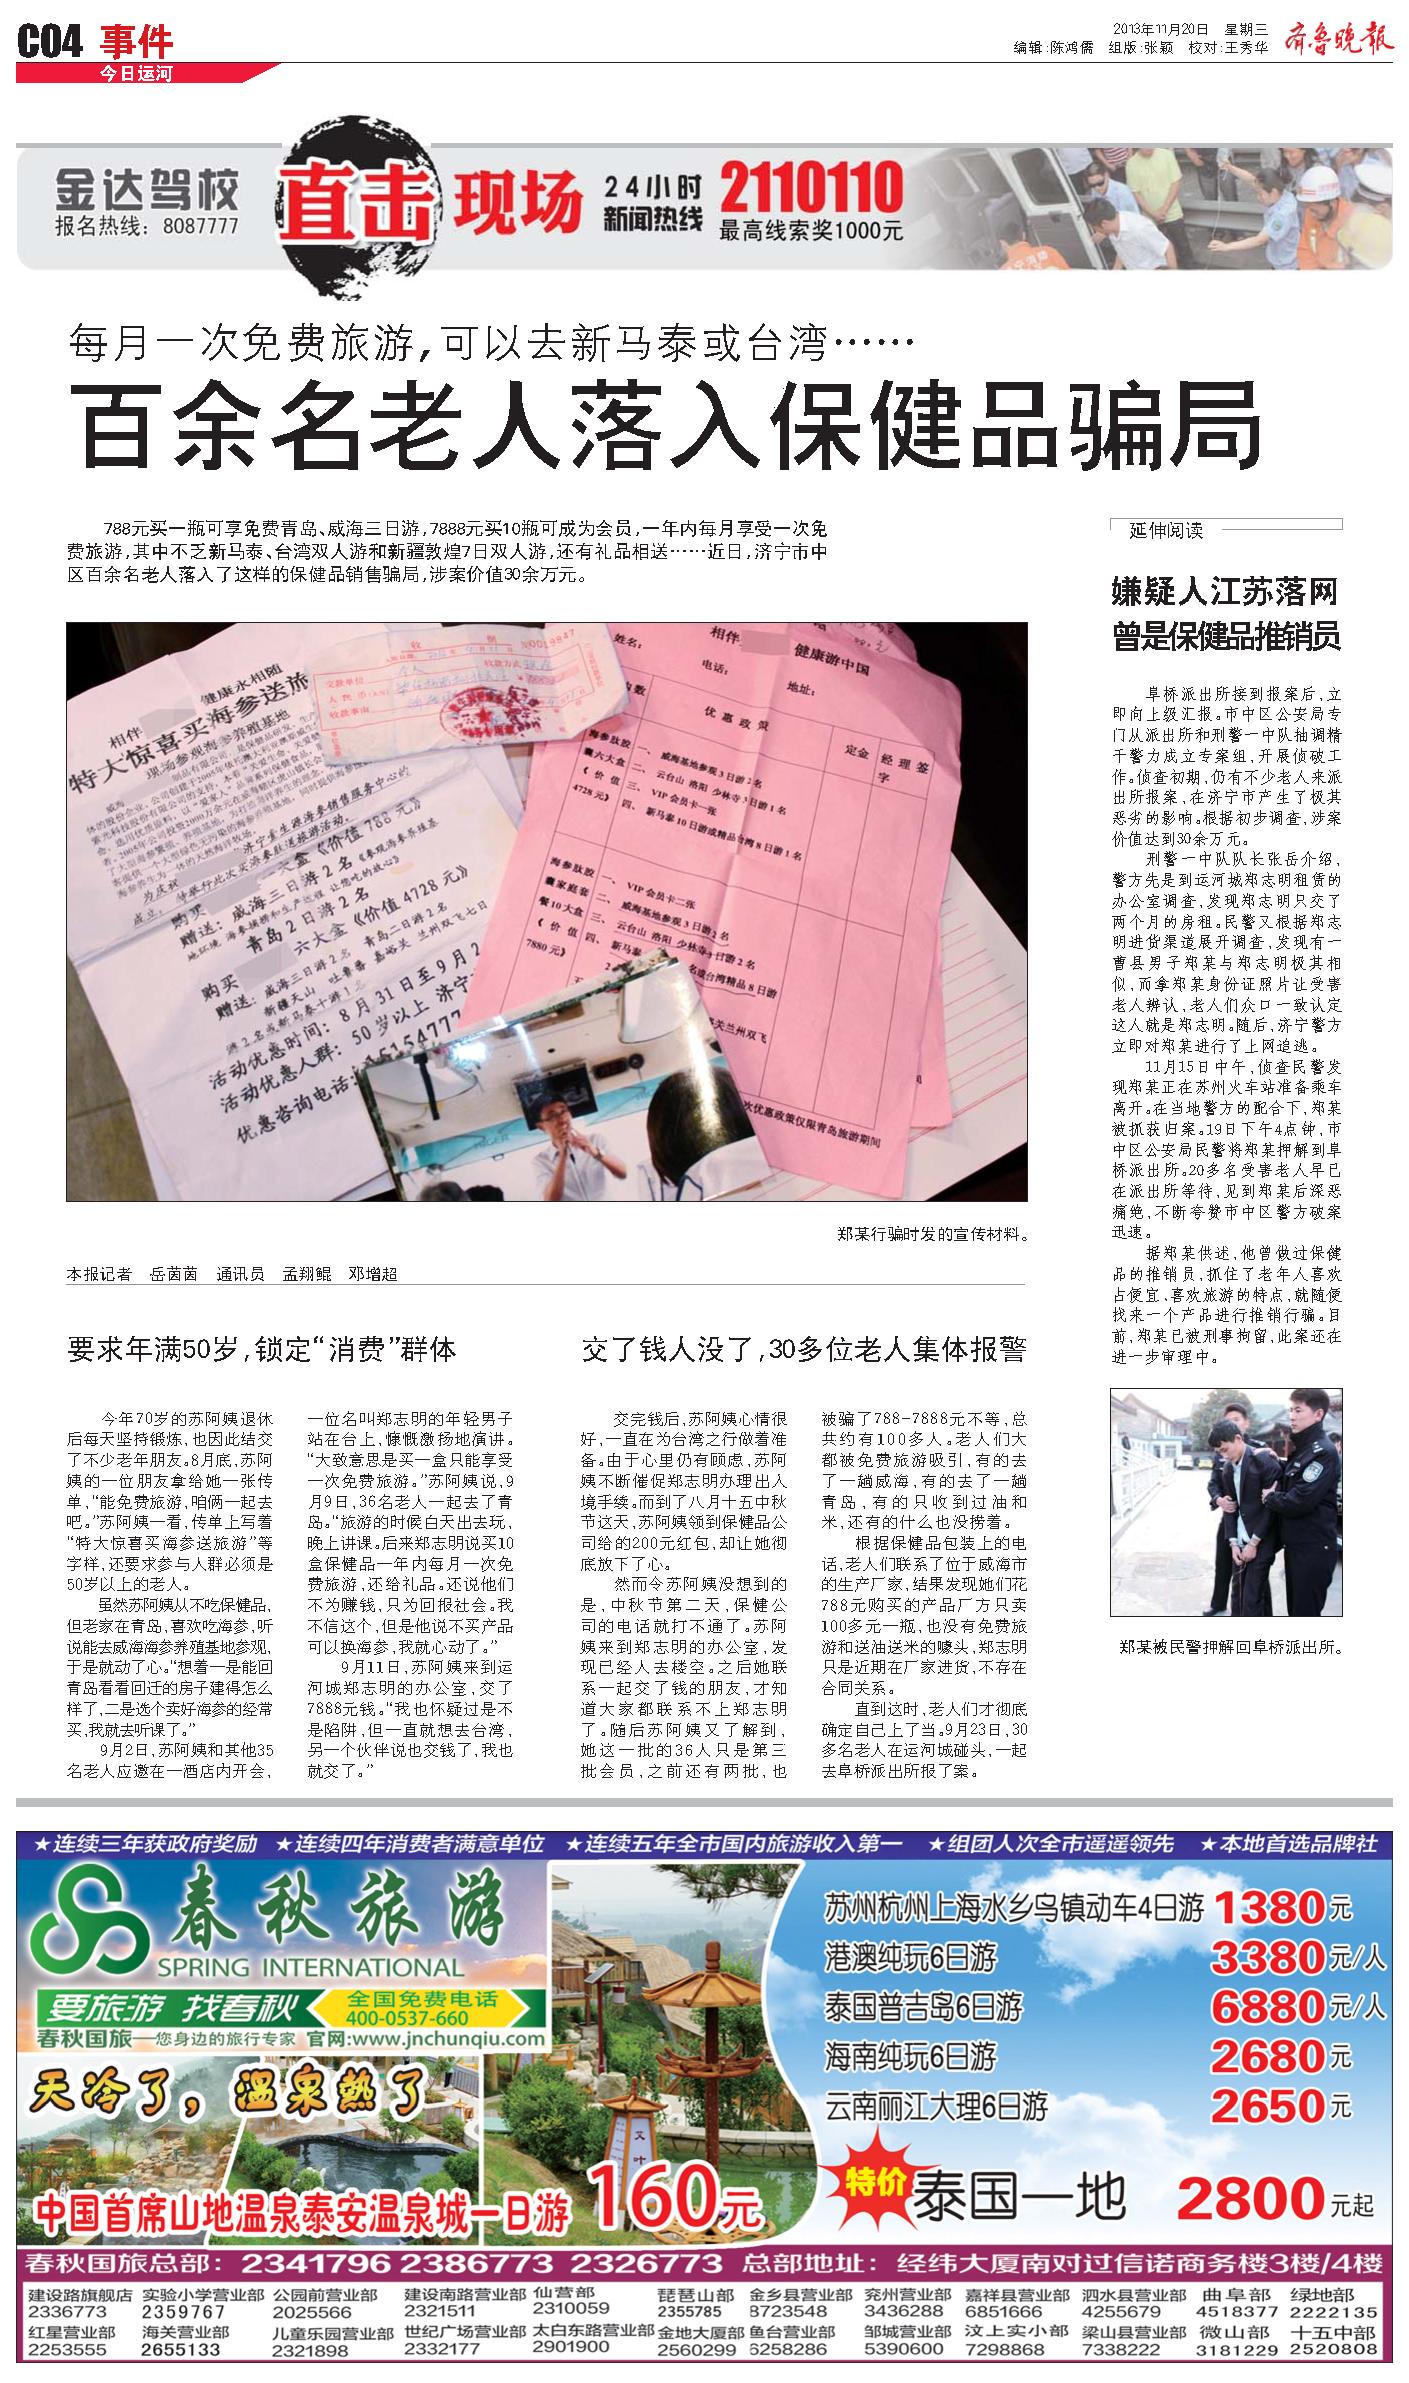 C04 事件
今日运河
2013年11月20日 星期三
编辑:陈鸿儒 组版:张颖 校对:王秀华
齐鲁晚报
金达驾校
报名热线：8087777
直击现场
24小时
新闻热线
2110110
最高线索奖1000元
每月一次免费旅游,可以去新马泰或台湾……
百余名老人落入保健品骗局
788元买一瓶可享免费青岛、威海三日游,7888元买10瓶可成为会员,一年内每月享受一次免
费旅游,其中不乏新马泰、台湾双人游和新疆敦煌7日双人游,还有礼品相送……近日,济宁市中
区百余名老人落入了这样的保健品销售骗局,涉案价值30余万元。
健康永相随
相伴
特大惊喜买海参送旅
现场参观海参养殖基地
购买
大盒《价值788元》
赠送：威海三日游2名
青岛2日游2名
购买
六大盒《价值4728元》
赠送：威海三日游2名
青岛二日游2名
活动优惠时间：8月31日至9月2
活动优惠人群：50岁以上 济宁
优惠咨询电话：
交款单位
收款事由
相伴
健康游中国
姓名：
电话：
地址：
优惠政策
定金
经理签字
海参肽胶
囊六大盒
《价值
4728元》
一、威海基地参观3日游2名
二、云台山 洛阳 少林寺3日游1名
三、VIP会员卡一张
四、新马泰10日游或精品台湾8日游1名
海参肽胶
囊家庭套
餐10大盒
《价值
7880元》
一、VIP会员卡二张
二、威海基地参观3日游2名
三、云台山 洛阳 少林寺3日游2名
四、新马泰
名或台湾精品8日游
关兰州双飞
次优惠政策仅限青岛旅游期间
郑某行骗时发的宣传材料。
本报记者 岳茵茵 通讯员 孟翔鲲 邓增超
要求年满50岁,锁定“消费”群体
今年70岁的苏阿姨退休
后每天坚持锻炼,也因此结交
了不少老年朋友。8月底,苏阿
姨的一位朋友拿给她一张传
单,“能免费旅游,咱俩一起去
吧。”苏阿姨一看,传单上写着
“特大惊喜买海参送旅游”等
字样,还要求参与人群必须是
50岁以上的老人。
虽然苏阿姨从不吃保健品,
但老家在青岛,喜欢吃海参,听
说能去威海海参养殖基地参观,
于是就动了心。“想着一是能回
青岛看看回迁的房子建得怎么
样了,二是选个卖好海参的经常
买,我就去听课了。”
9月2日,苏阿姨和其他35
名老人应邀在一酒店内开会,
一位名叫郑志明的年轻男子
站在台上,慷慨激扬地演讲。
“大致意思是买一盒只能享受
一次免费旅游。”苏阿姨说,9
月9日,36名老人一起去了青
岛。“旅游的时候白天出去玩,
晚上讲课。后来郑志明说买10
盒保健品一年内每月一次免
费旅游,还给礼品。还说他们
不为赚钱,只为回报社会。我
不信这个,但是他说不买产品
可以换海参,我就心动了。”
9月11日,苏阿姨来到运
河城郑志明的办公室,交了
7888元钱。“我也怀疑过是不
是陷阱,但一直就想去台湾,
另一个伙伴说也交钱了,我也
就交了。”
交了钱人没了,30多位老人集体报警
交完钱后,苏阿姨心情很
好,一直在为台湾之行做着准
备。由于心里仍有顾虑,苏阿
姨不断催促郑志明办理出入
境手续。而到了八月十五中秋
节这天,苏阿姨领到保健品公
司给的200元红包,却让她彻
底放下了心。
然而令苏阿姨没想到的
是,中秋节第二天,保健公
司的电话就打不通了。苏阿
姨来到郑志明的办公室,发
现已经人去楼空。之后她联
系一起交了钱的朋友,才知
道大家都联系不上郑志明
了。随后苏阿姨又了解到,
她这一批的36人只是第三
批会员,之前还有两批,也
被骗了788-7888元不等,总
共约有100多人。老人们大
都被免费旅游吸引,有的去
了一趟威海,有的去了一趟
青岛,有的只收到过油和
米,还有的什么也没捞着。
根据保健品包装上的电
话,老人们联系了位于威海市
的生产厂家,结果发现她们花
788元购买的产品厂方只卖
100多元一瓶,也没有免费旅
游和送油送米的噱头,郑志明
只是近期在厂家进货,不存在
合同关系。
直到这时,老人们才彻底
确定自己上了当。9月23日,30
多名老人在运河城碰头,一起
去阜桥派出所报了案。
延伸阅读
嫌疑人江苏落网
曾是保健品推销员
阜桥派出所接到报案后,立
即向上级汇报。市中区公安局专
门从派出所和刑警一中队抽调精
干警力成立专案组,开展侦破工
作。侦查初期,仍有不少老人来派
出所报案,在济宁市产生了极其
恶劣的影响。根据初步调查,涉案
价值达到30余万元。
刑警一中队队长张岳介绍,
警方先是到运河城郑志明租赁的
办公室调查,发现郑志明只交了
两个月的房租。民警又根据郑志
明进货渠道展开调查,发现有一
曹县男子郑某与郑志明极其相
似,而拿郑某身份证照片让受害
老人辨认,老人们众口一致认定
这人就是郑志明。随后,济宁警方
立即对郑某进行了上网追逃。
11月15日中午,侦查民警发
现郑某正在苏州火车站准备乘车
离开。在当地警方的配合下,郑某
被抓获归案。19日下午4点钟,市
中区公安局民警将郑某押解到阜
桥派出所。20多名受害老人早已
在派出所等待,见到郑某后深恶
痛绝,不断夸赞市中区警方破案
迅速。
据郑某供述,他曾做过保健
品的推销员,抓住了老年人喜欢
占便宜,喜欢旅游的特点,就随便
找来一个产品进行推销行骗。目
前,郑某已被刑事拘留,此案还在
进一步审理中。
郑某被民警押解回阜桥派出所。
★连续三年获政府奖励 ★连续四年消费者满意单位 ★连续五年全市国内旅游收入第一 ★组团人次全市遥遥领先 ★本地首选品牌社
春秋旅游
SPRING INTERNATIONAL
要旅游 找春秋
全国免费电话
400-0537-660
春秋国旅—您身边的旅行专家 官网:www.jnchunqiu.com
天冷了，温泉热了
艾叶
中国首席山地温泉泰安温泉城一日游 160元
苏州杭州上海水乡乌镇动车4日游 1380元
港澳纯玩6日游 3380元/人
泰国普吉岛6日游 6880元/人
海南纯玩6日游 2680元
云南丽江大理6日游 2650元
特价 泰国一地 2800元起
春秋国旅总部：2341796 2386773 2326773 总部地址：经纬大厦南对过信诺商务楼3楼/4楼
建设路旗舰店 实验小学营业部 公园前营业部 建设南路营业部 仙营部 琵琶山部 金乡县营业部 兖州营业部 嘉祥县营业部 泗水县营业部 曲阜部 绿地部
2336773 2359767 2025566 2321511 2310059 2355785 8723548 3436288 6851666 4255679 4518377 2222135
红星营业部 海关营业部 儿童乐园营业部 世纪广场营业部 太白东路营业部 金地大厦部 鱼台营业部 邹城营业部 汶上实小部 梁山县营业部 微山部 十五中部
2253555 2655133 2321898 2332177 2901900 2560299 6258286 5390600 7298868 7338222 3181229 2520808